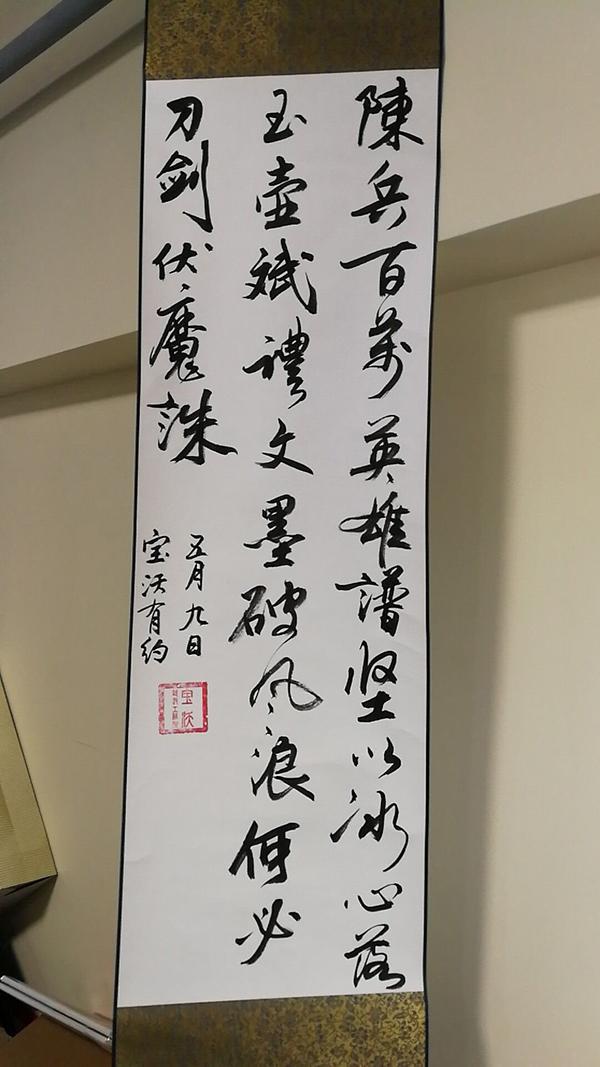 陳兵百萬英雄譜坚以冰心落
玉壺斌禮文墨破风浪何必
刀劍伏魔誅
五月九日
宝沃有约
宝沃